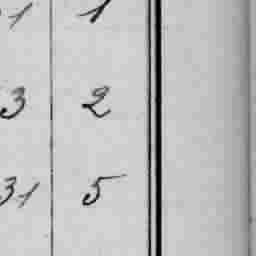 1 1
3 2
31 5